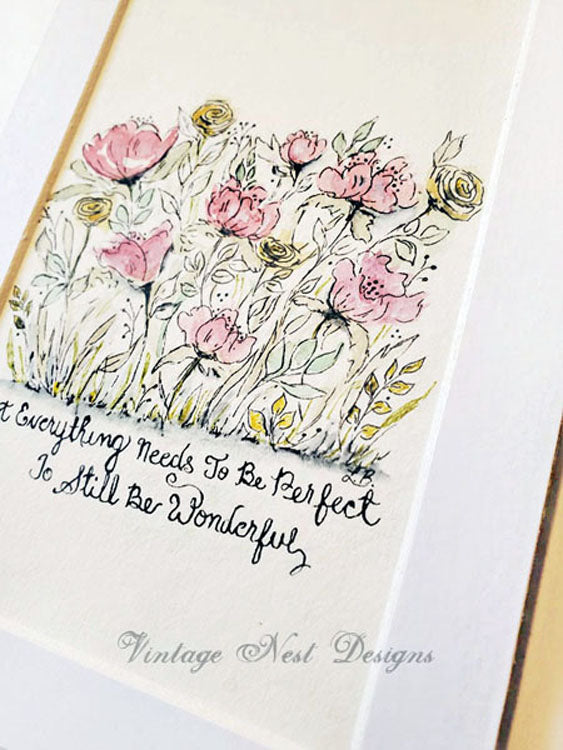 t Everything Needs To Be Perfect
To Still Be Wonderful
L.B.
Vintage Nest Designs